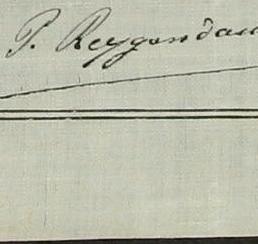 P. Reygondau